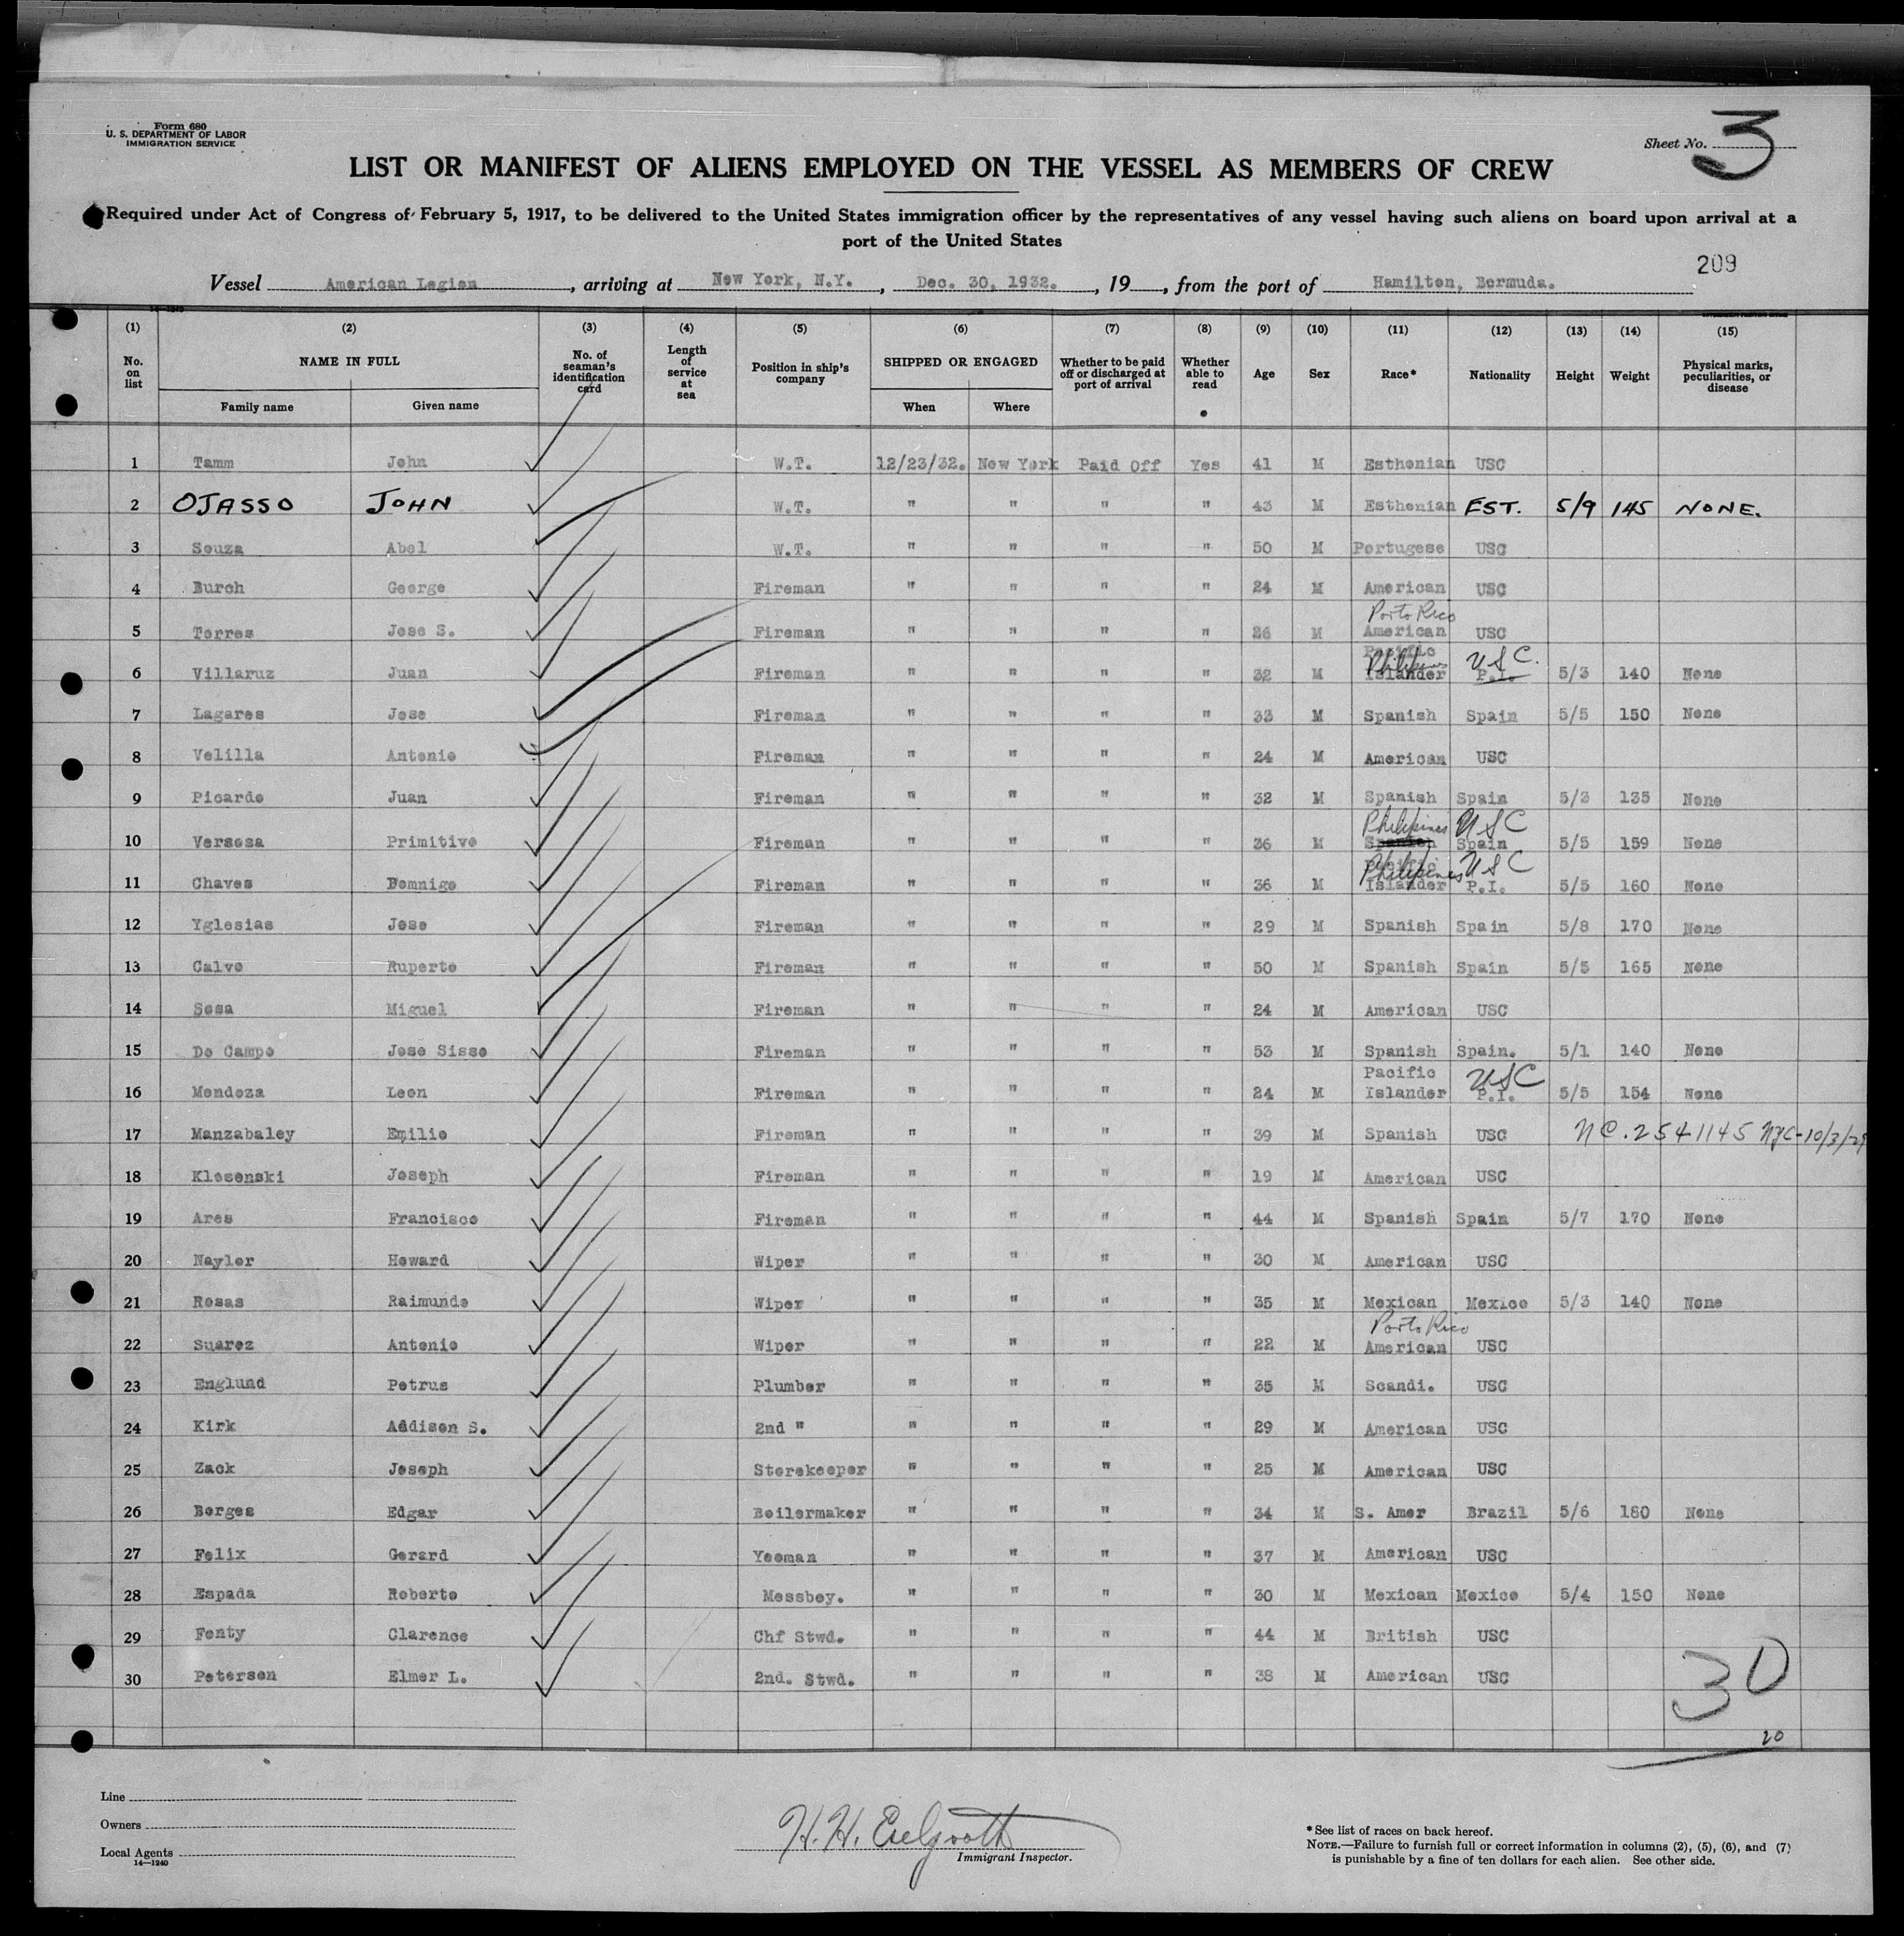 Form 680
U. S. DEPARTMENT OF LABOR
IMMIGRATION SERVICE
Sheet No. 3
LIST OR MANIFEST OF ALIENS EMPLOYED ON THE VESSEL AS MEMBERS OF CREW
Required under Act of Congress of February 5, 1917, to be delivered to the United States immigration officer by the representatives of any vessel having such aliens on board upon arrival at a
port of the United States
209
Vessel American Legion, arriving at New York, N.Y., Dec. 30, 1932., 19, from the port of Hamilton, Bermuda.
(1) (2) (3) (4) (5) (6) (7) (8) (9) (10) (11) (12) (13) (14) (15)
No. on list NAME IN FULL No. of seaman's identification card Length of service at sea Position in ship's company SHIPPED OR ENGAGED Whether to be paid off or discharged at port of arrival Whether able to read Age Sex Race* Nationality Height Weight Physical marks, peculiarities, or disease
Family name Given name When Where
1 Tamm John W.T. 12/23/32. New York Paid Off Yes 41 M Esthonian USC
2 OJASSO JOHN W.T. " " " " 43 M Esthonian EST. 5/9 145 NONE.
3 Souza Abel W.T. " " " " 50 M Portugese USC
4 Burch George Fireman " " " " 24 M American USC
Porto Rico
5 Torres Jose S. Fireman " " " " 26 M American USC
Pacific
Philipines USC.
6 Villaruz Juan Fireman " " " " 32 M Islander P.I. 5/3 140 None
7 Lagares Jose Fireman " " " " 33 M Spanish Spain 5/5 150 None
8 Velilla Antonio Fireman " " " " 24 M American USC
9 Picardo Juan Fireman " " " " 32 M Spanish Spain 5/3 135 None
Philipines USC
10 Versosa Primitivo Fireman " " " " 36 M Spanish Spain 5/5 159 None
Pacific
Philipines USC
11 Chaves Domnigo Fireman " " " " 36 M Islander P.I. 5/5 160 None
12 Yglesias Jose Fireman " " " " 29 M Spanish Spain 5/8 170 None
13 Calvo Ruperto Fireman " " " " 50 M Spanish Spain 5/5 165 None
14 Sosa Miguel Fireman " " " " 24 M American USC
15 Do Campo Jose Sisso Fireman " " " " 53 M Spanish Spain. 5/1 140 None
Pacific USC
16 Mendoza Leon Fireman " " " " 24 M Islander P.I. 5/5 154 None
17 Manzabaley Emilio Fireman " " " " 39 M Spanish USC NC.2541145 NYC-10/3/29
18 Klosenski Joseph Fireman " " " " 19 M American USC
19 Ares Francisco Fireman " " " " 44 M Spanish Spain 5/7 170 None
20 Naylor Howard Wiper " " " " 30 M American USC
21 Rosas Raimundo Wiper " " " " 35 M Mexican Mexico 5/3 140 None
Porto Rico
22 Suarez Antonio Wiper " " " " 22 M American USC
23 Englund Petrus Plumber " " " " 35 M Scandi. USC
24 Kirk Addison S. 2nd " " " " " 29 M American USC
25 Zack Joseph Storekeeper " " " " 25 M American USC
26 Borges Edgar Boilermaker " " " " 34 M S. Amer Brazil 5/6 180 None
27 Felix Gerard Yeoman " " " " 37 M American USC
28 Espada Roberto Messboy. " " " " 30 M Mexican Mexico 5/4 150 None
29 Fenty Clarence Chf Stwd. " " " " 44 M British USC
30 Peterson Elmer L. 2nd. Stwd. " " " " 38 M American USC
30
20
Line
Owners
Local Agents
14—1240
H. H.
Immigrant Inspector.
* See list of races on back hereof.
NOTE.—Failure to furnish full or correct information in columns (2), (5), (6), and (7)
is punishable by a fine of ten dollars for each alien. See other side.